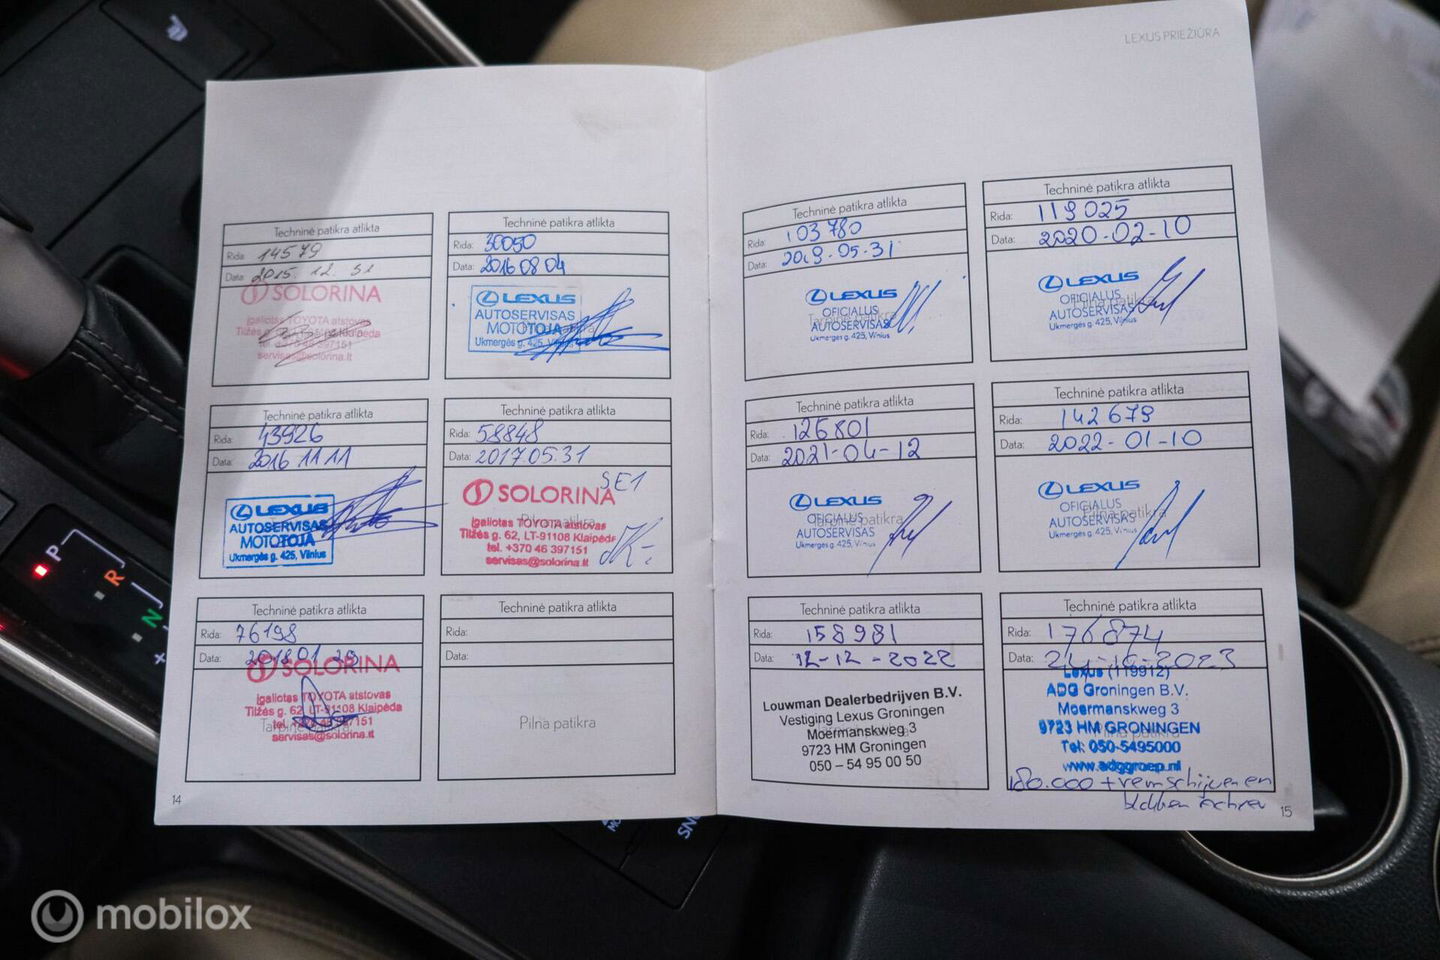 LEXUS PRIEŽIŪRA
Techninė patikra atlikta
Rida: 14579
Data: 2015. 12. 31
SOLORINA
Įgaliotas TOYOTA atstovas
servisas@solorina.lt
Techninė patikra atlikta
Rida: 30050
Data: 2016 08 04
LEXUS
AUTOSERVISAS
MOTOTOJA
Ukmergės g. 425, Vilnius
Techninė patikra atlikta
Rida: 43926
Data: 2016 11 11
LEXUS
AUTOSERVISAS
MOTOTOJA
Ukmergės g. 425, Vilnius
Techninė patikra atlikta
Rida: 58848
Data: 2017 05.31
SE1
SOLORINA
Įgaliotas TOYOTA atstovas
Tilžės g. 62, LT-91108 Klaipėda
tel. +370 46 397151
servisas@solorina.lt
Techninė patikra atlikta
Rida: 76198
Data: 2018 01
SOLORINA
Įgaliotas TOYOTA atstovas
Tilžės g. 62, LT-91108 Klaipėda
servisas@solorina.lt
Techninė patikra atlikta
Rida:
Data:
Pilna patikra
14
Techninė patikra atlikta
Rida: 103780
Data: 2019-05-31
LEXUS
OFICIALUS
AUTOSERVISAS
Ukmergės g. 425, Vilnius
Techninė patikra atlikta
Rida: 119025
Data: 2020-02-10
LEXUS
OFICIALUS
AUTOSERVISAS
Ukmergės g. 425, Vilnius
Techninė patikra atlikta
Rida: 126801
Data: 2021-04-12
LEXUS
OFICIALUS
AUTOSERVISAS
Ukmergės g. 425, Vilnius
Techninė patikra atlikta
Rida: 142679
Data: 2022-01-10
LEXUS
OFICIALUS
AUTOSERVISAS
Ukmergės g. 425, Vilnius
Techninė patikra atlikta
Rida: 158981
Data: 12-12-2022
Louwman Dealerbedrijven B.V.
Vestiging Lexus Groningen
Moermanskweg 3
9723 HM Groningen
050 – 54 95 00 50
Techninė patikra atlikta
Rida: 176874
Data: 2023
Lexus (119912)
ADG Groningen B.V.
Moermanskweg 3
9723 HM GRONINGEN
Tel: 050-5495000
www.adggroep.nl
180.000 + remschijven en
blokken achter
15
P
R
N
mobilox